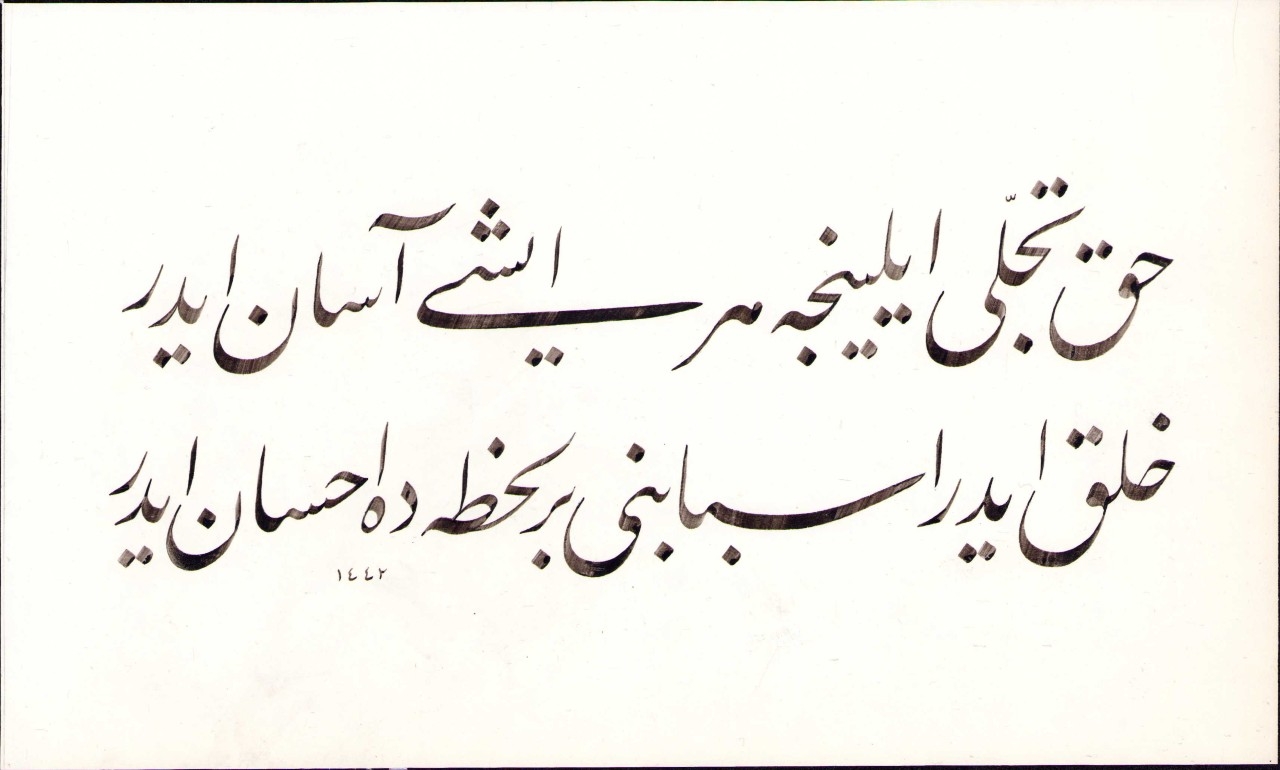 حق تجلّی ایلینجه هر ایشی آسان ایدر
خلق ایدر اسبابنی بر لحظه ده احسان ایدر
١٤٤٢